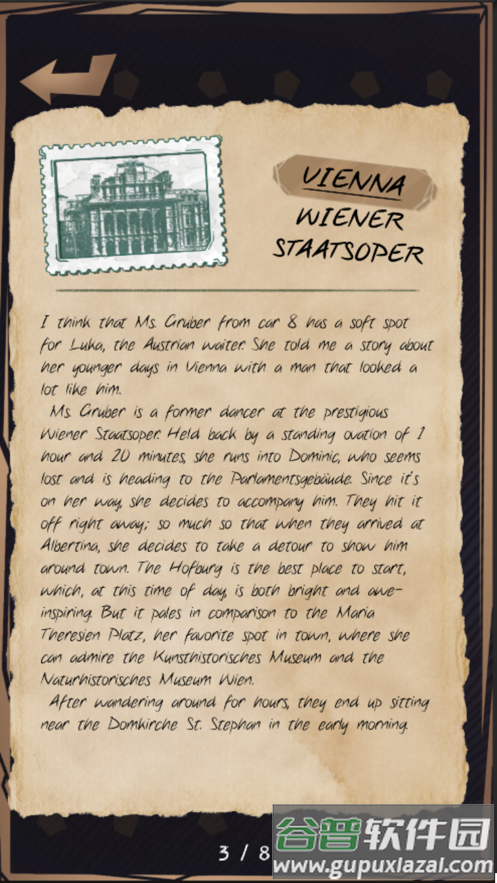 VIENNA
WIENER
STAATSOPER
I think that Ms. Gruber from car 8 has a soft spot
for Luka, the Austrian waiter. She told me a story about
her younger days in Vienna with a man that looked a
lot like him.
Ms. Gruber is a former dancer at the prestigious
Wiener Staatsoper. Held back by a standing ovation of 1
hour and 20 minutes, she runs into Dominic, who seems
lost and is heading to the Parlamentsgebäude. Since it's
on her way, she decides to accompany him. They hit it
off right away; so much so that when they arrived at
Albertina, she decides to take a detour to show him
around town. The Hofburg is the best place to start,
which, at this time of day, is both bright and awe-
inspiring. But it pales in comparison to the Maria
Theresien Platz, her favorite spot in town, where she
can admire the Kunsthistorisches Museum and the
Naturhistorisches Museum Wien.
After wandering around for hours, they end up sitting
near the Domkirche St. Stephan in the early morning.
3 / 8
谷普软件园
www.gupuxlazal.com